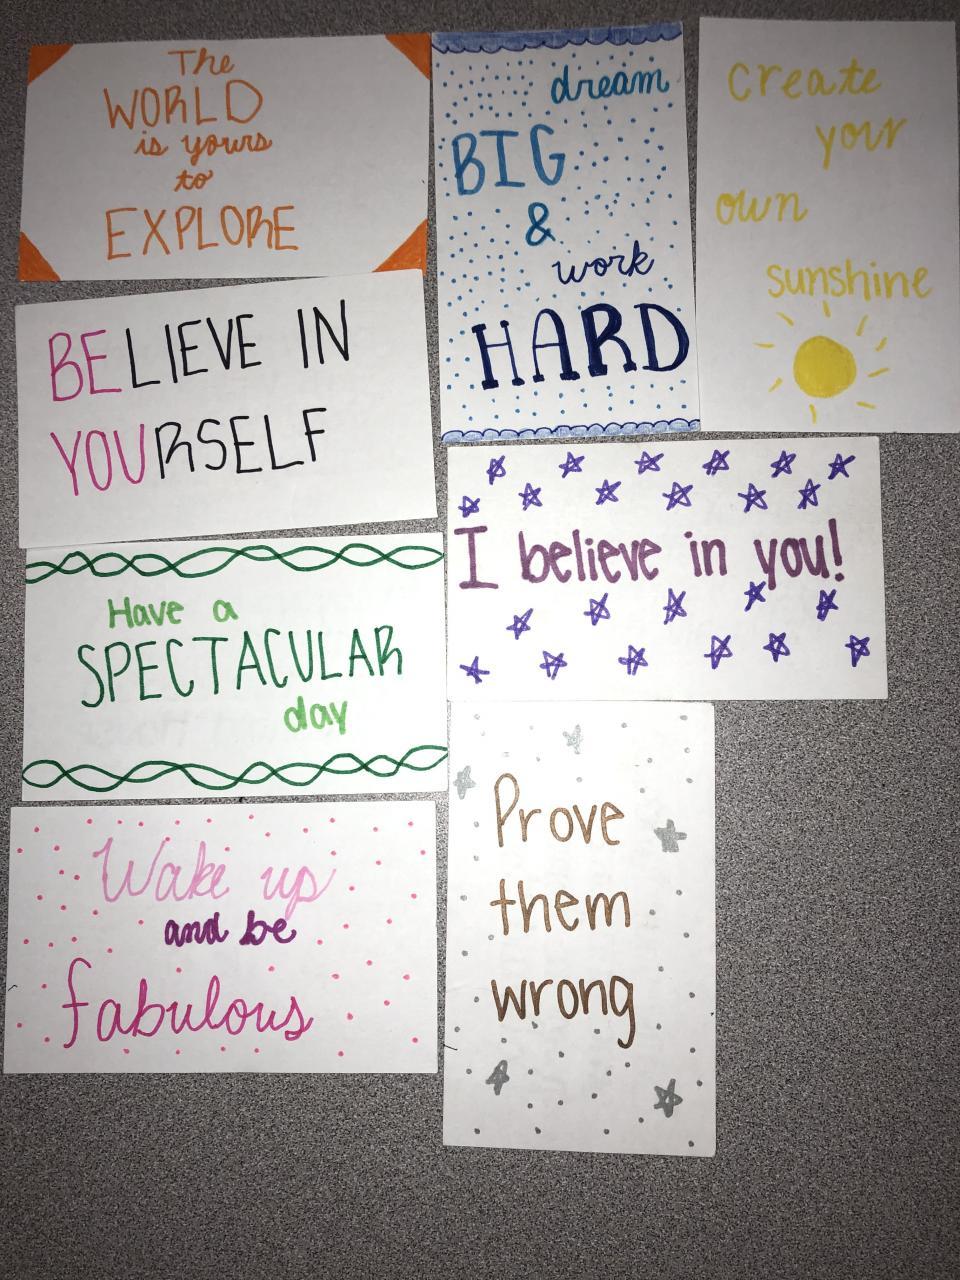 The
WORLD
is yours
to
EXPLORE
dream
BIG
&
work
HARD
create
your
own
sunshine
BELIEVE IN
YOURSELF
I believe in you!
Have a
SPECTACULAR
day
Prove
them
wrong
Wake up
and be
fabulous